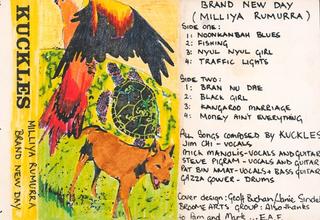 KUCKLES
MILLIYA RUMURRA
BRAND NEW DAY
BRAND NEW DAY
(MILLIYA RUMURRA)
SIDE ONE:
1: NOONKANBAH BLUES
2: FISHING
3: NYUL NYUL GIRL
4: TRAFFIC LIGHTS
SIDE TWO:
1: BRAN NU DAE
2: BLACK GIRL
3: KANGAROO MARRIAGE
4: MONEY AIN'T EVERYTHING
ALL SONGS COMPOSED BY KUCKLES
JIM CHI - VOCALS
MICK MANOLIS - VOCALS AND GUITAR
STEVE PIGRAM - VOCALS AND GUITAR
PAT BIN AMAT - VOCALS + BASS GUITAR
GAZZA GOWER - DRUMS
Cover design: Geoff Buchan/
BROOME ARTS GROUP: Also thanks
to Pam and Mark ... E.A.F.